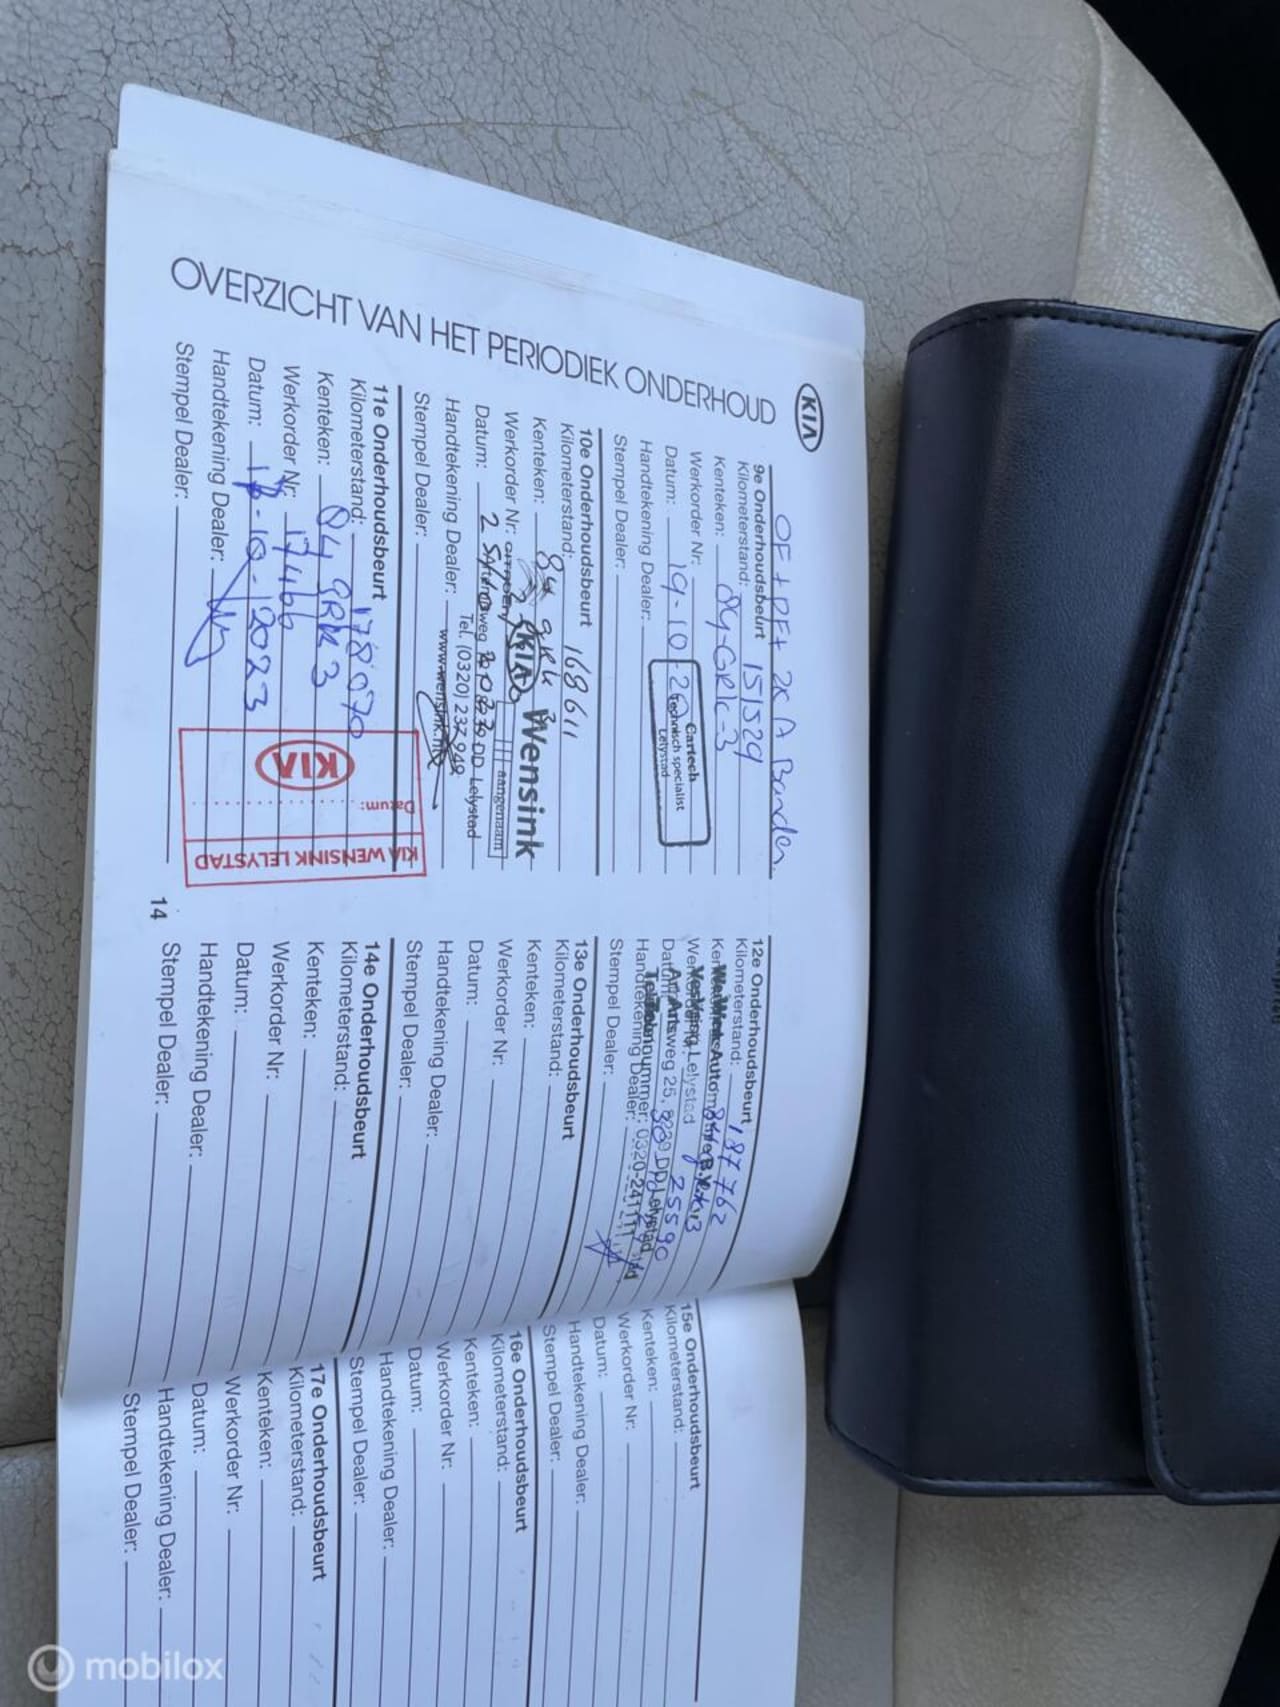 KIA
OVERZICHT VAN HET PERIODIEK ONDERHOUD
OF + PF + 2x A Banden
9e Onderhoudsbeurt
Kilometerstand: 151529
Kenteken: 84-GRK-3
Werkorder Nr:
Datum: 19-10
Handtekening Dealer:
Stempel Dealer:
Cartech
Technisch specialist
Lelystad
10e Onderhoudsbeurt
Kilometerstand: 168611
Kenteken: 84 GRK 3
Werkorder Nr:
Datum:
Handtekening Dealer:
Stempel Dealer:
Wensink
KIA
aangenaam
DD Lelystad
Tel. (0320) 237 949
www.wensink.nl
11e Onderhoudsbeurt
Kilometerstand: 178070
Kenteken: 84 GRK 3
Werkorder Nr: 17466
Datum: -10-2023
Handtekening Dealer:
Stempel Dealer:
KIA
Datum:
KIA WENSINK LELYSTAD
14
12e Onderhoudsbeurt
Kilometerstand: 187762
Werkorder Nr: 25590
Datum:
Handtekening Dealer:
Stempel Dealer:
Lelystad
weg 25, 8239 DD Lelystad
13e Onderhoudsbeurt
Kilometerstand:
Kenteken:
Werkorder Nr:
Datum:
Handtekening Dealer:
Stempel Dealer:
14e Onderhoudsbeurt
Kilometerstand:
Kenteken:
Werkorder Nr:
Datum:
Handtekening Dealer:
Stempel Dealer:
15e Onderhoudsbeurt
Kilometerstand:
Kenteken:
Werkorder Nr:
Datum:
Handtekening Dealer:
Stempel Dealer:
16e Onderhoudsbeurt
Kilometerstand:
Kenteken:
Werkorder Nr:
Datum:
Handtekening Dealer:
Stempel Dealer:
17e Onderhoudsbeurt
Kilometerstand:
Kenteken:
Werkorder Nr:
Datum:
Handtekening Dealer:
Stempel Dealer:
mobilox